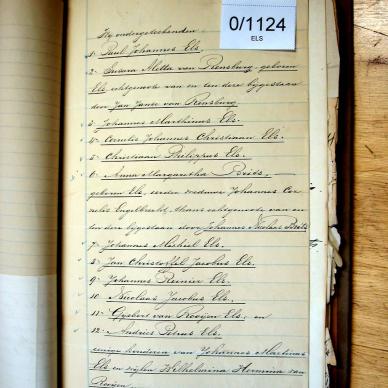 0/1124
ELS
Wij ondergeteekenden
1. Paul Johannes Els.
2. Susara Metta van Rensburg, geboren
Els echtgenote van en ten dere bijgestaan
door Jan Janse van Rensburg
3. Johannes Marthinus Els.
4. Cornelis Johannes Christiaan Els.
5. Christiaan Philippus Els.
6. Anna Margaretha Brits,
geboren Els, eerder weduwe Johannes Cor
nelis Engelbrecht, thans echtgenote van en
ten dere bijgestaan door Johannes Nicolaas Brits
7. Johannes Michiel Els.
8. Jan Christoffel Jacobus Els.
9. Johannes Reinier Els.
10. Nicolaas Jacobus Els.
11. Gysbert van Rooijen Els, en
12. Andries Petrus Els.
eenige kinderen van Johannes Martinus
Els en wijlen Wilhelmina Hermina van
Rooijen